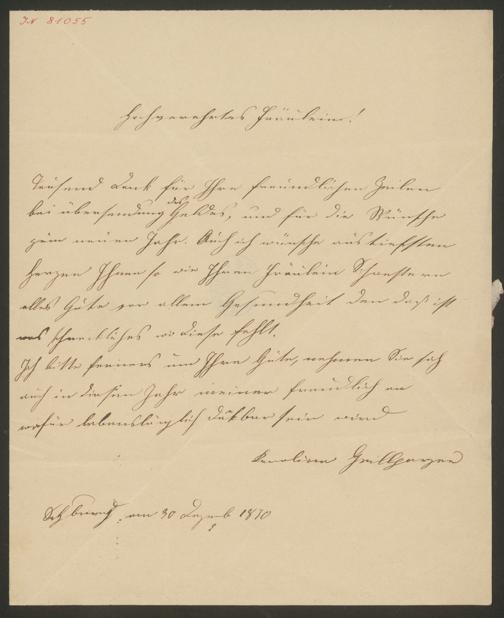 I.N 81055
Hochverehrtes Fräulein!
Tausend Dank für Ihre freundlichen Zeilen
bei übersendung des Geldes, und für die Wünsche
zum neuen Jahr. Auch ich wünsche aus tiefsten
Herzen Ihnen so wie Ihren Fräulein Schwestern
alles Gute vor allem Gesundheit den das ist
was schreckliches wo diese fehlt.
Ich bitte ferners um Ihre Güte, nehmen Sie sich
auch in diesen Jahr meiner freundlich an
wofür lebenslänglich dankbar sein wird
Karoline Grillparzer
Salzburg, am 30 Dezemb 1870